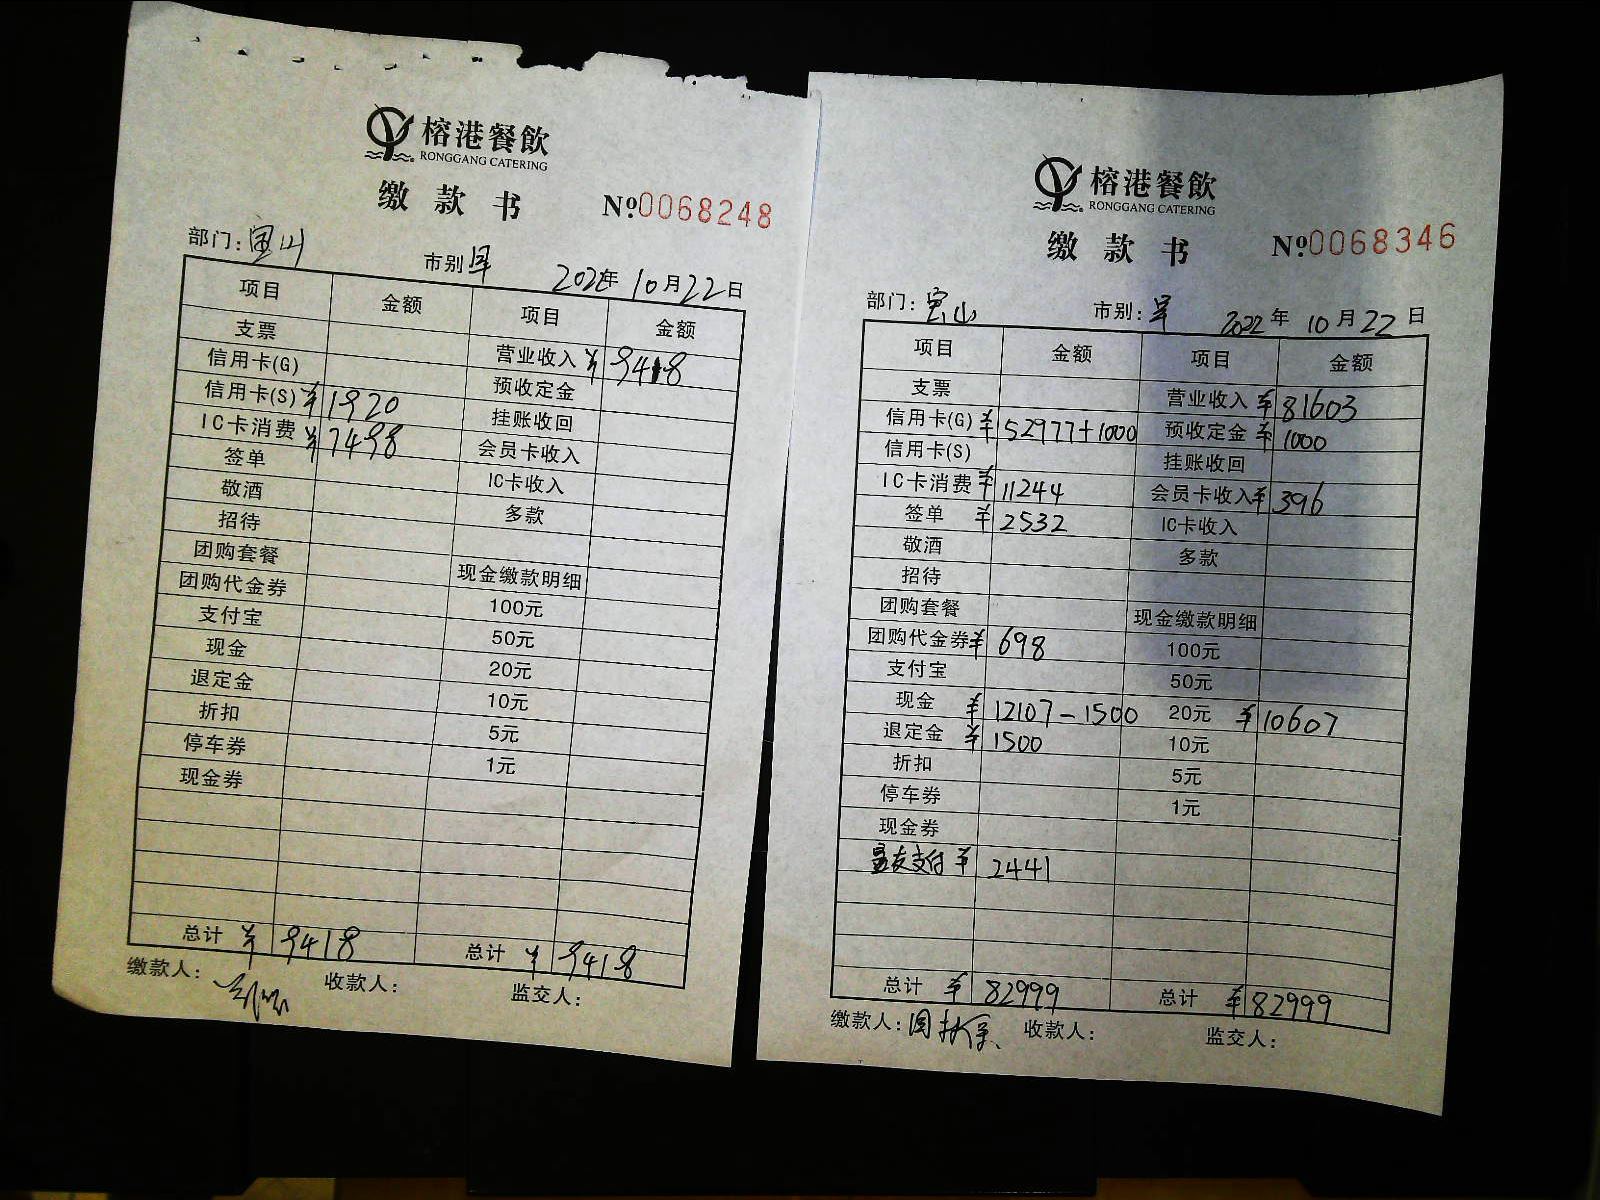 榕港餐飲
RONGGANG CATERING
缴款书 №0068248
部门：宝山 市别 2022年10月22日
项目 金额 项目 金额
支票 营业收入 ¥9418
信用卡(G) 预收定金
信用卡(S) ¥1920 挂账收回
IC卡消费 ¥7498 会员卡收入
签单 IC卡收入
敬酒 多款
招待
团购套餐 现金缴款明细
团购代金券 100元
支付宝 50元
现金 20元
退定金 10元
折扣 5元
停车券 1元
现金券
总计 ¥9418 总计 ¥9418
缴款人： 收款人： 监交人：
榕港餐飲
RONGGANG CATERING
缴款书 №0068346
部门：宝山 市别： 2022年10月22日
项目 金额 项目 金额
支票 营业收入 ¥81603
信用卡(G) ¥52977+1000 预收定金 ¥1000
信用卡(S) 挂账收回
IC卡消费 ¥11244 会员卡收入 ¥396
签单 ¥2532 IC卡收入
敬酒 多款
招待
团购套餐 现金缴款明细
团购代金券 ¥698 100元
支付宝 50元
现金 ¥12107-1500 20元 ¥10607
退定金 ¥1500 10元
折扣 5元
停车券 1元
现金券
支付 ¥2441
总计 ¥82999 总计 ¥82999
缴款人： 收款人： 监交人：